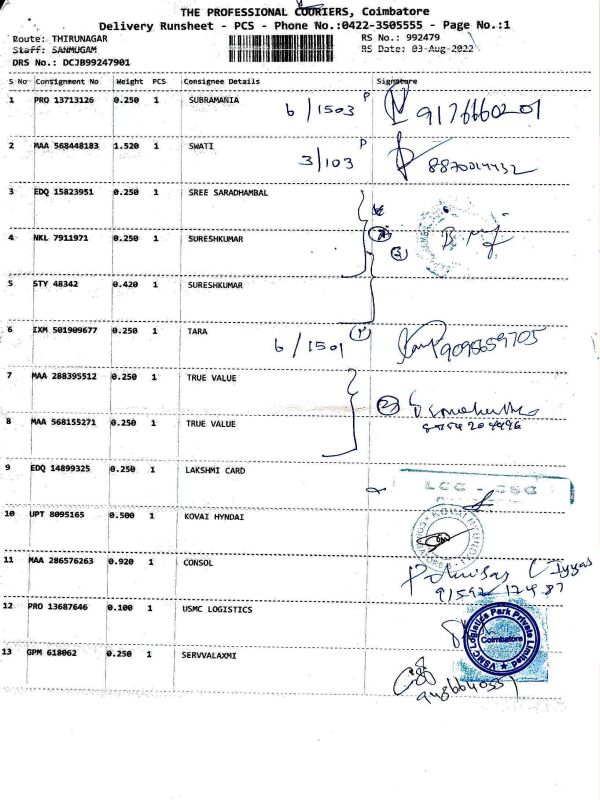 THE PROFESSIONAL COURIERS, Coimbatore
Delivery Runsheet - PCS - Phone No.:0422-3505555 - Page No.:1
Route: THIRUNAGAR RS No.: 992479
Staff: SANMUGAM RS Date: 03-Aug-2022
DRS No.: DCJB99247901
S No Consignment No Weight PCS Consignee Details Signature
1 PRO 13713126 0.250 1 SUBRAMANIA 6/1503 P 9176660201
2 MAA 568448183 1.520 1 SWATI 3/103 P
3 EDQ 15823951 0.250 1 SREE SARADHAMBAL
4 NKL 7911971 0.250 1 SURESHKUMAR
5 STY 48342 0.420 1 SURESHKUMAR
6 IXM 501909677 0.250 1 TARA 6/1501 9098659705
7 MAA 288395512 0.250 1 TRUE VALUE
8 MAA 568155271 0.250 1 TRUE VALUE
9 EDQ 14899325 0.250 1 LAKSHMI CARD
10 UPT 8095165 0.500 1 KOVAI HYNDAI
11 MAA 286576263 0.920 1 CONSOL
12 PRO 13687646 0.100 1 USMC LOGISTICS
VSMC Logistics Park Private Limited
Coimbatore
13 GPM 618062 0.250 1 SERVVALAXMI